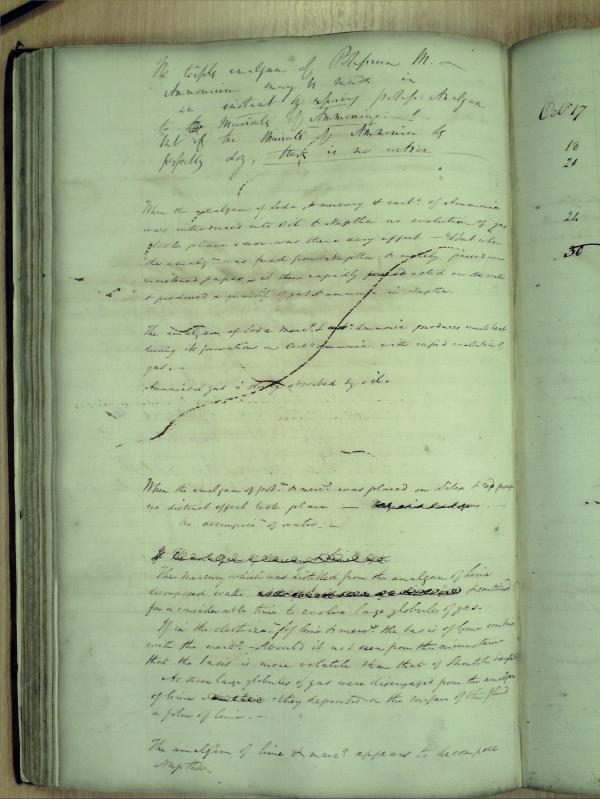 The triple amalgam of Potassium M. &
Ammonium may be made in
an instant by exposing potass: Amalgam
to the Muriate of Ammonia. —
but if the Muriate of Ammonia be
perfectly dry, there is no action
When the amalgam of Soda, & mercury & carb: of Ammonia
was introduced into Oil & Naptha no evolution of gas
took place & nor was there any effect — But when
the amalgm was freed from Naptha & placed on
moistened paper, it then rapidly acted on the water
& produced a quantity of gas & ammonia in Naptha.
The amalgam of Soda mercy. & Ammonia produces much heat
during its formation on carb ammonia with rapid evolution of
gas. —
Ammoniacal gas is slowly absorbed by oil.
When the amalgam of potm. & mercy. was placed on Silex & red
no distinct effect took place —
No decomposn. of water. —
The Mercury which was distilled from the amalgam of Lime
decomposed water & continued
for a considerable time to evolve large globules of gas.
If in the of lime & mercy. the basis of lime combine
with the mercy. – Would it not seem from this circumstance
that the basis is more volatile than that of
As these large globules of gas were disengaged from the amalgam
of lime they deposited on the surface of the fluid
a film of lime. —
The amalgam of lime & mercy. appears to decompose
Naptha.
Octr 17
18
21
24
30